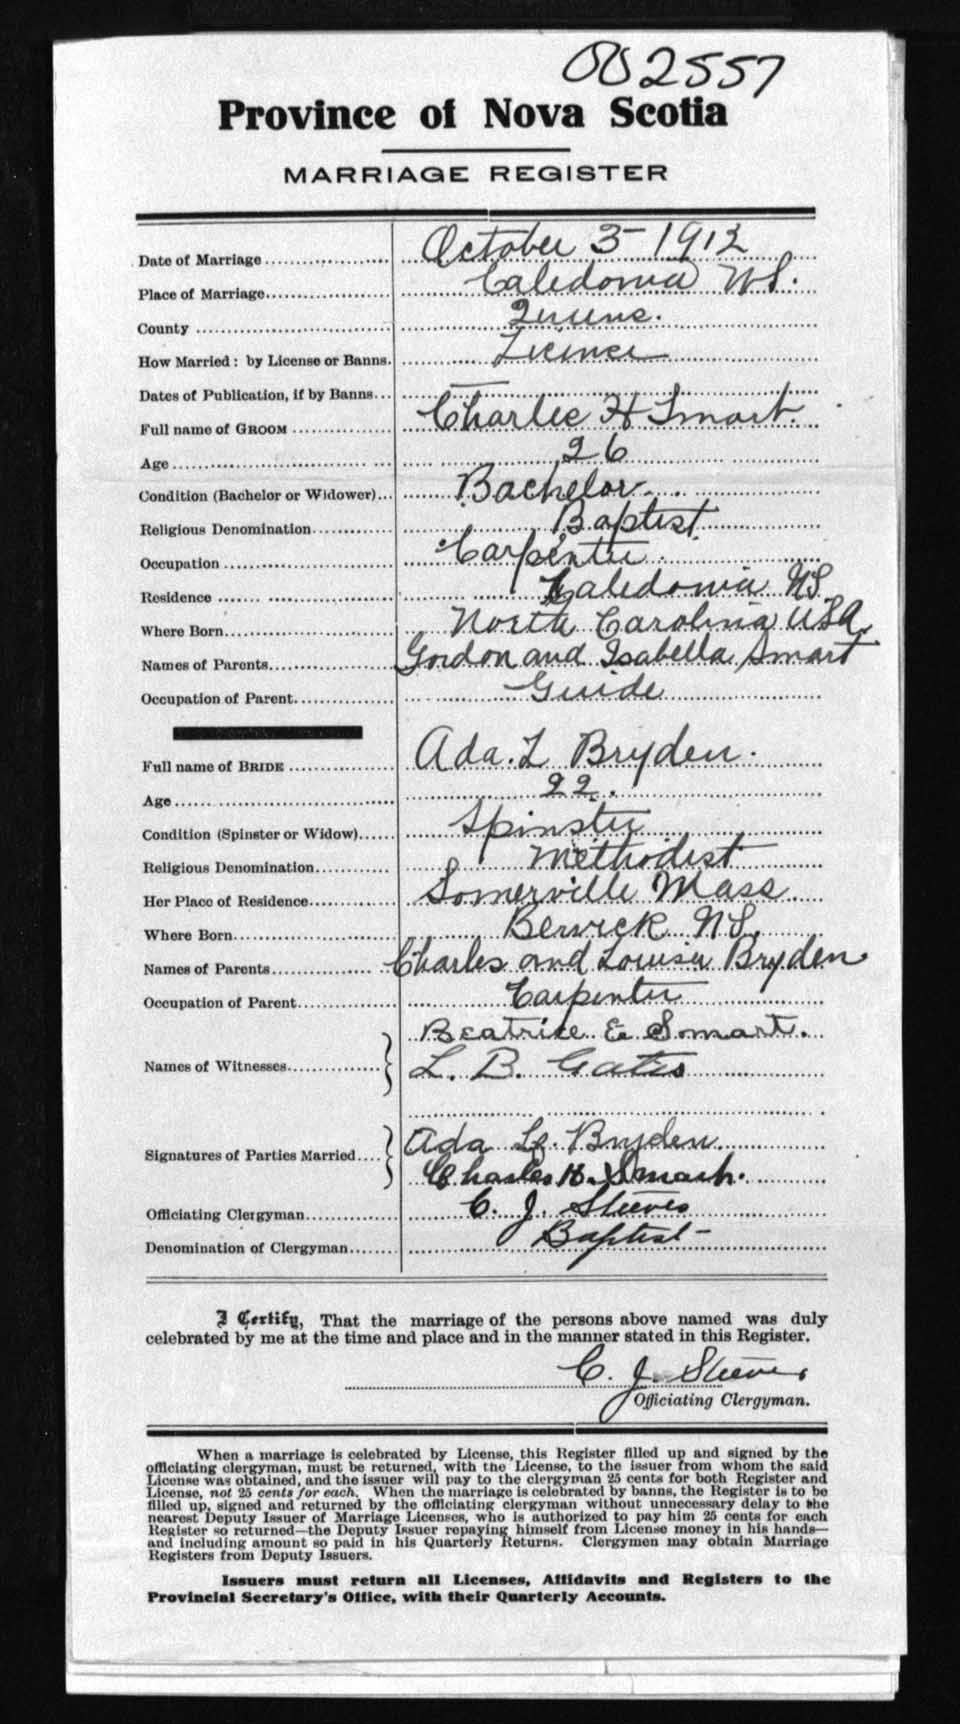 002557
Province of Nova Scotia
MARRIAGE REGISTER
Date of Marriage October 3 - 1912
Place of Marriage Caledonia N S.
County Queens.
How Married: by License or Banns. Licence
Dates of Publication, if by Banns —
Full name of GROOM Charlie H Smart.
Age 26
Condition (Bachelor or Widower) Bachelor
Religious Denomination Baptist
Occupation Carpenter
Residence Caledonia NS
Where Born North Carolina USA.
Names of Parents Gordon and Isabella Smart
Occupation of Parent Guide
Full name of BRIDE Ada. L Bryden.
Age 22.
Condition (Spinster or Widow) Spinster
Religious Denomination Methodist
Her Place of Residence Somerville Mass
Where Born Berwick N S.
Names of Parents Charles and Louisa Bryden
Occupation of Parent Carpenter
Beatrice E Smart.
Names of Witnesses L. B. Gates
Ada L. Bryden
Signatures of Parties Married Charles H. Smart.
Officiating Clergyman C. J. Steeves
Denomination of Clergyman Baptist
I Certify, That the marriage of the persons above named was duly
celebrated by me at the time and place and in the manner stated in this Register.
C. J. Steeves
Officiating Clergyman.
When a marriage is celebrated by License, this Register filled up and signed by the
officiating clergyman, must be returned, with the License, to the issuer from whom the said
License was obtained, and the issuer will pay to the clergyman 25 cents for both Register and
License, not 25 cents for each. When the marriage is celebrated by banns, the Register is to be
filled up, signed and returned by the officiating clergyman without unnecessary delay to the
nearest Deputy Issuer of Marriage Licenses, who is authorized to pay him 25 cents for each
Register so returned—the Deputy Issuer repaying himself from License money in his hands—
and including amount so paid in his Quarterly Returns. Clergymen may obtain Marriage
Registers from Deputy Issuers.
Issuers must return all Licenses, Affidavits and Registers to the
Provincial Secretary's Office, with their Quarterly Accounts.